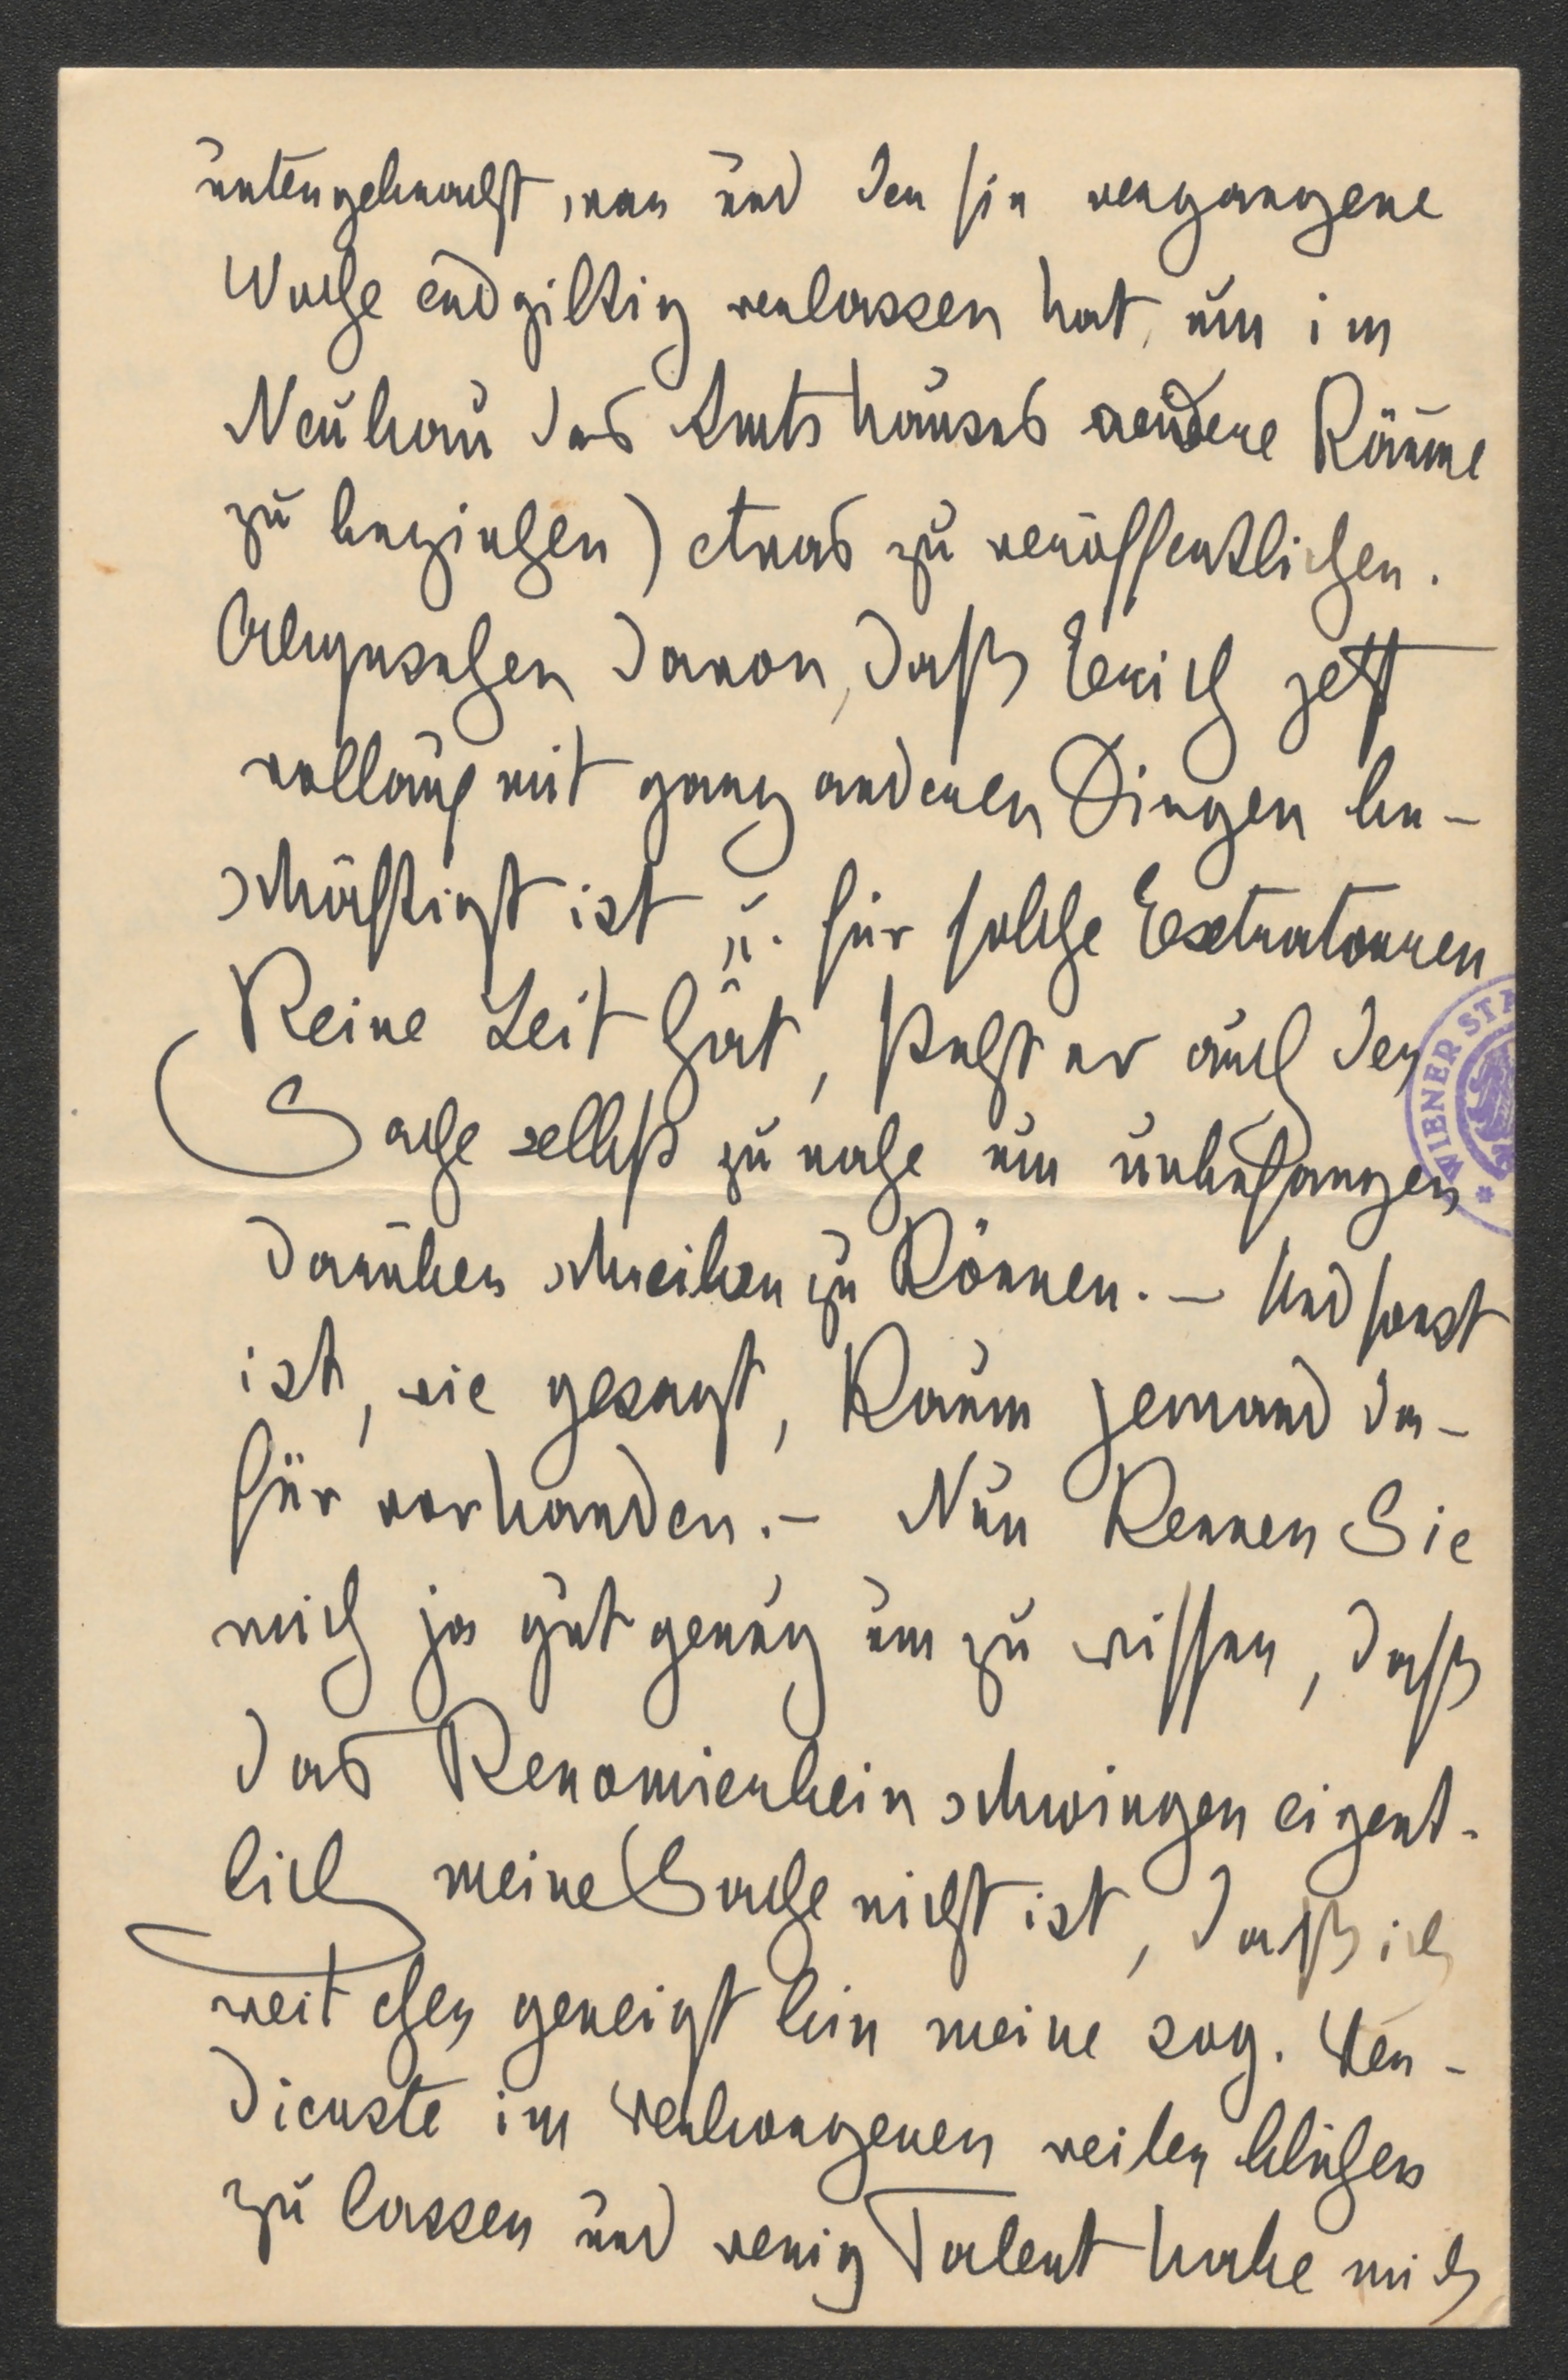 untergebracht war und den sie vergangene
Woche endgiltig verlassen hat, um im
Neubau des Amtshauses andere Räume
zu beziehen) etwas zu veröffentlichen.
Abgesehen davon, daß Erich jetzt
vollauf mit ganz anderen Dingen be-
schäftigt ist u. für solche Extratouren
keine Zeit hat, steht er auch der
Sache selbst zu nahe um unbefangen
darüber schreiben zu können. – Und sonst
ist, wie gesagt, kaum jemand da-
für vorhanden. – Nun kennen Sie
mich ja gut genug um zu wissen, daß
das Renomierbein schwingen eigent-
lich meine Sache nicht ist, daß ich
weit eher geneigt bin meine sog. Ver-
dienste im Verborgenen weiter blühen
zu lassen und wenig Talent habe mich
WIENER STA